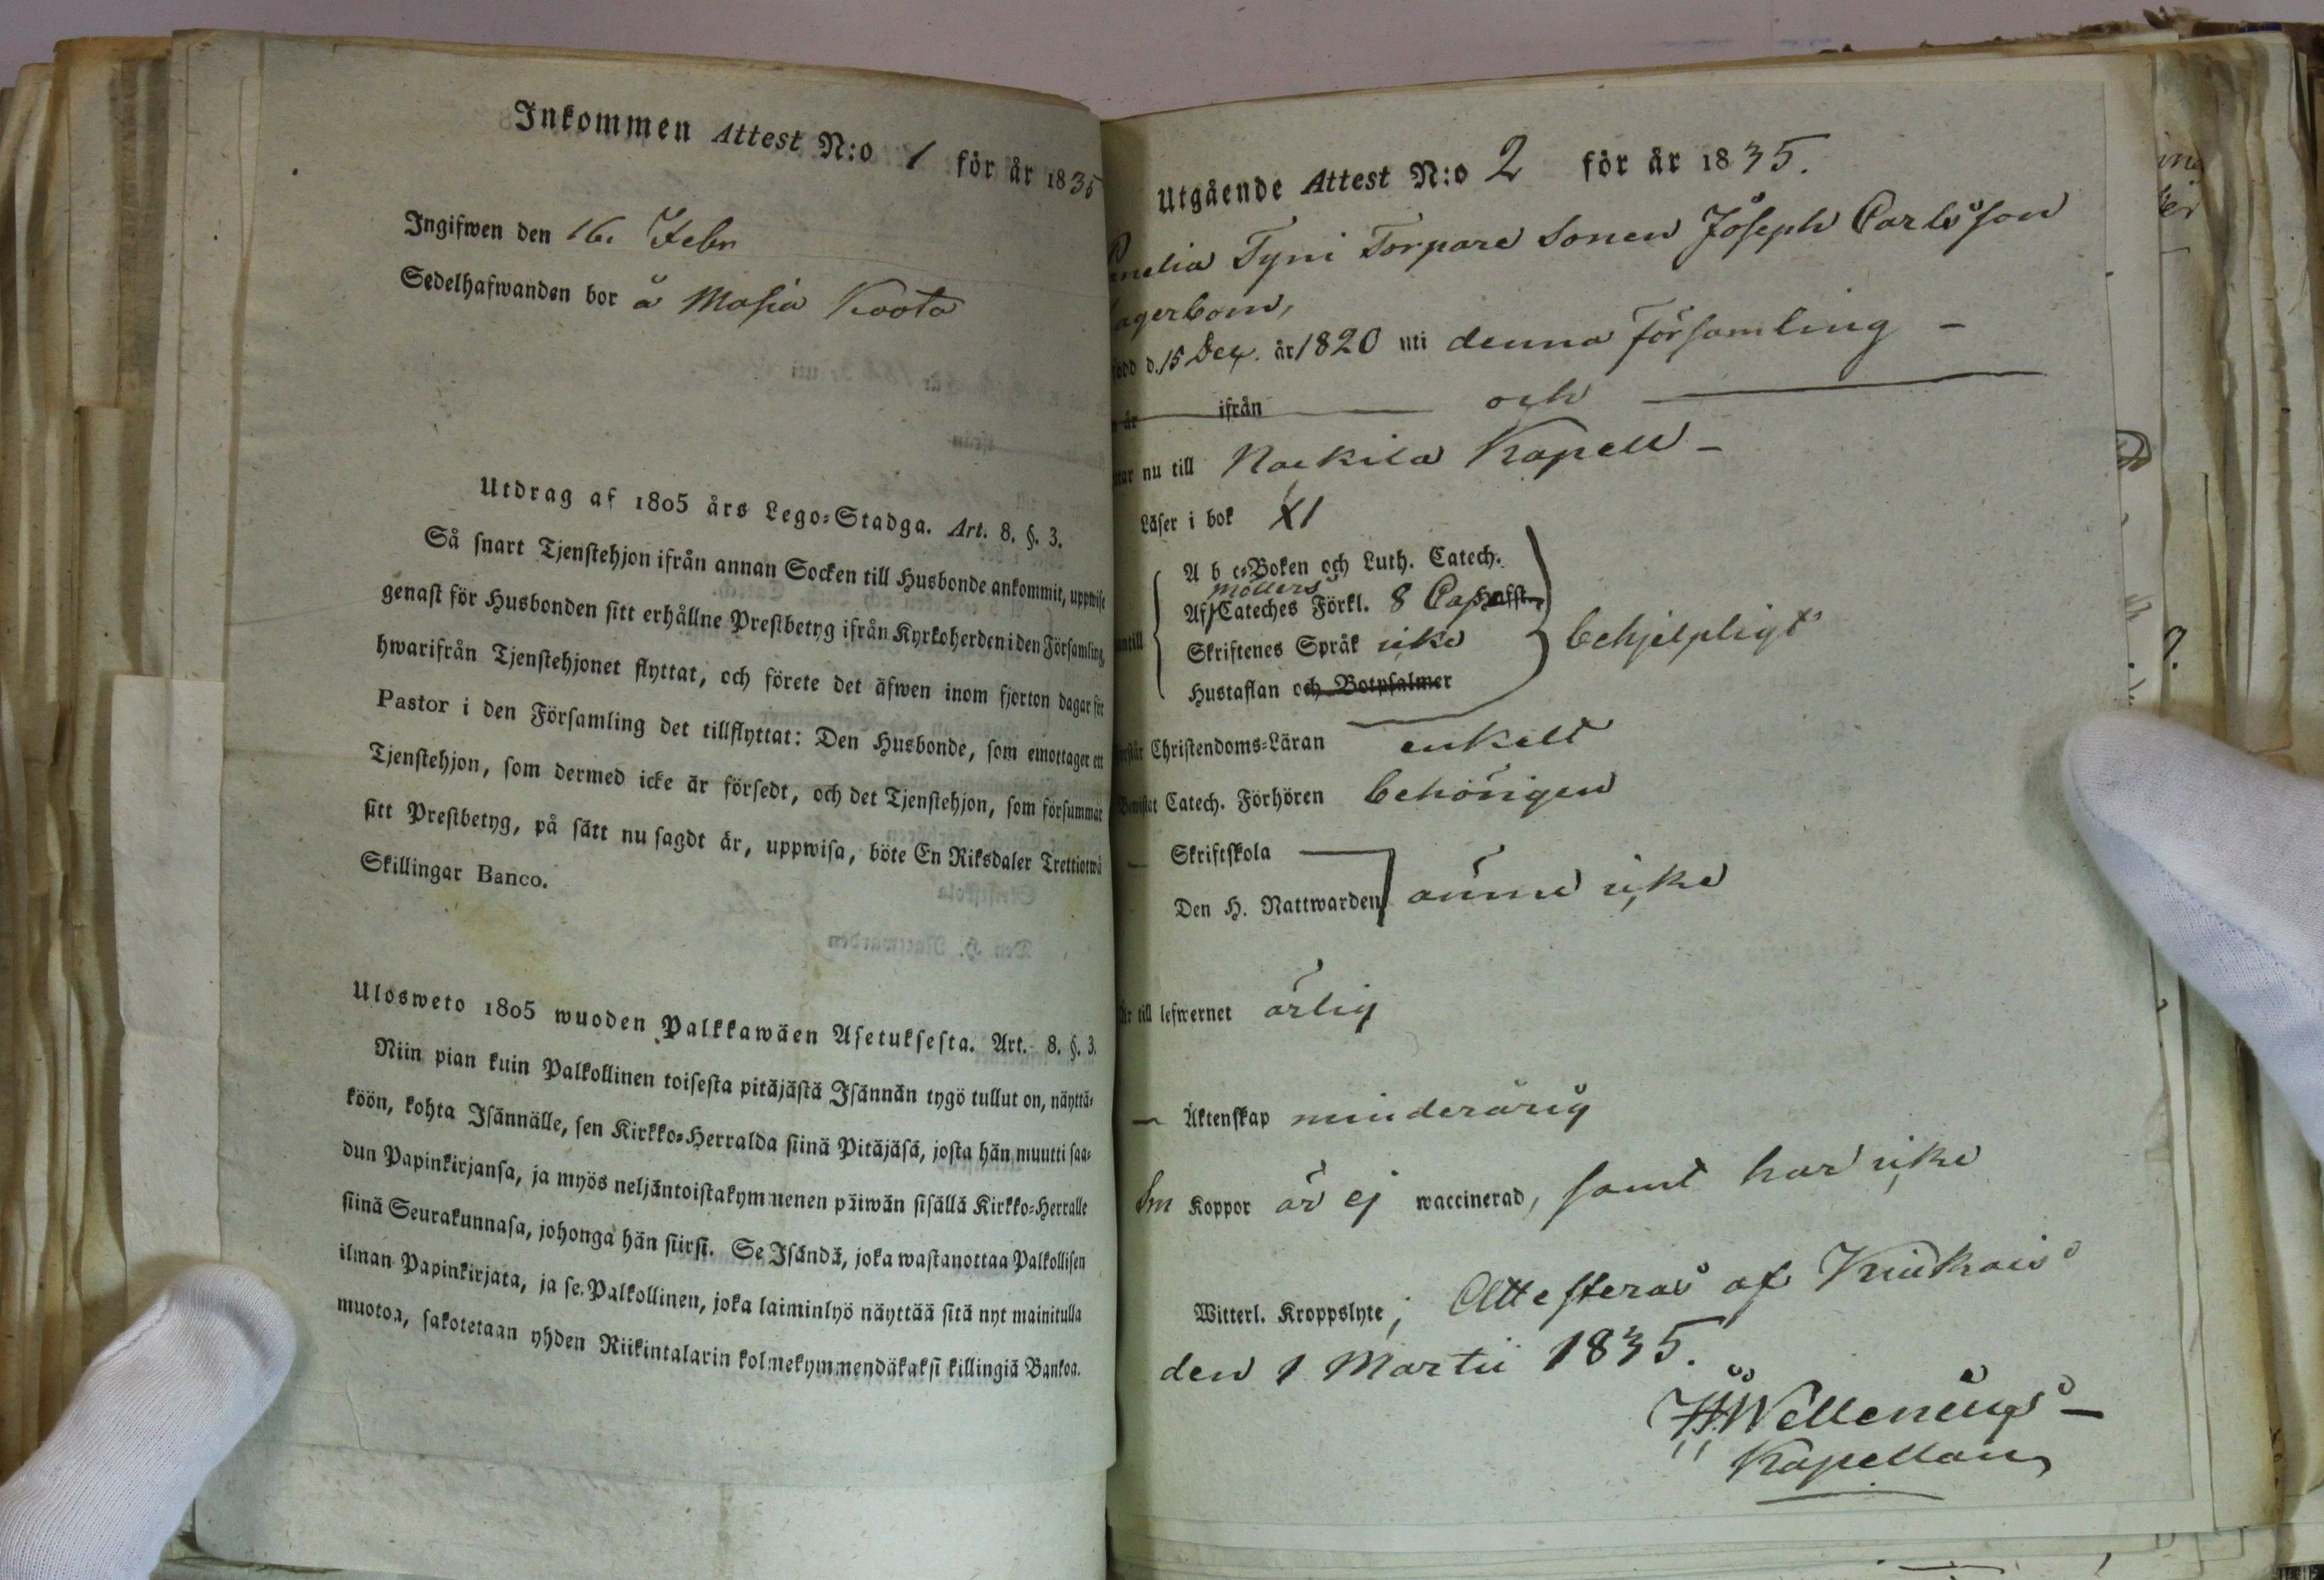 Inkommen Attest N:o 1 för år 1835
Ingifwen den 16. Febr
Sedelhafwanden bor å Masia Koota
Utdrag af 1805 års Lego-Stadga. Art. 8. §. 3.
Så snart Tjenstehjon ifrån annan Socken till Husbonde ankommit, uppwise
genast för Husbonden sitt erhållne Prestbetyg ifrån Kyrkoherden i den Församling,
hwarifrån Tjenstehjonet flyttat, och förete det äfwen inom fjorton dagar för
Pastor i den Församling det tillflyttat: Den Husbonde, som emottager ett
Tjenstehjon, som dermed icke är försedt, och det Tjenstehjon, som försummar
sitt Prestbetyg, på sätt nu sagdt är, uppwisa, böte En Riksdaler Trettiotwå
Skillingar Banco.
Ulosweto 1805 wuoden Palkkawäen Asetuksesta. Art. 8. §. 3.
Niin pian kuin Palkollinen toisesta pitäjästä Isännän tygö tullut on, näyttä-
köön, kohta Isännälle, sen Kirkko-Herralda siinä Pitäjäsä, josta hän muutti saa-
dun Papinkirjansa, ja myös neljäntoistakymmenen päiwän sisällä Kirkko-Herralle
siinä Seurakunnasa, johonga hän siirsi. Se Isändä, joka wastanottaa Palkollisen
ilman Papinkirjata, ja se Palkollinen, joka laiminlyö näyttää sitä nyt mainitulla
muotoa, sakotetaan yhden Riikintalarin kolmekymmendäkaksi killingiä Bankoa.
Utgående Attest N:o 2 för år 1835.
Tyni Torpare Sonen Joseph Carlsson
agerbom,
född d. 15 Dec. år 1820 uti denna församling –
år ifrån och
nu till Nackila Kapell –
Läser i bok XI
A b c-Boken och Luth. Catech.
Möllers
Af Cateches Förkl. 8 Cap.
Skriftenes Språk icke
behjelpligt
Hustaflan och Botpsalmer
Christendoms-Läran enkelt
Bewistat Catech. Förhören behörigen
— Skriftskola
Den H. Nattwarden ännu icke
Är till lefwernet ärlig
— Äktenskap minderårig
Om Koppor är ej waccinerad, samt har icke
Witterl. Kroppslyte; Attesteras af Kiukais
den 1 Martii 1835.
Wellenius –
Kapellan